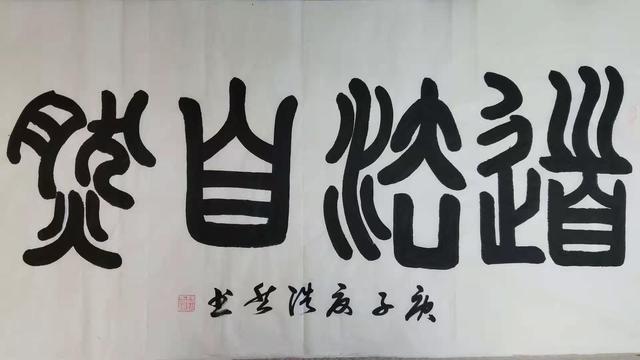 道法自然
庚子夏浩然书